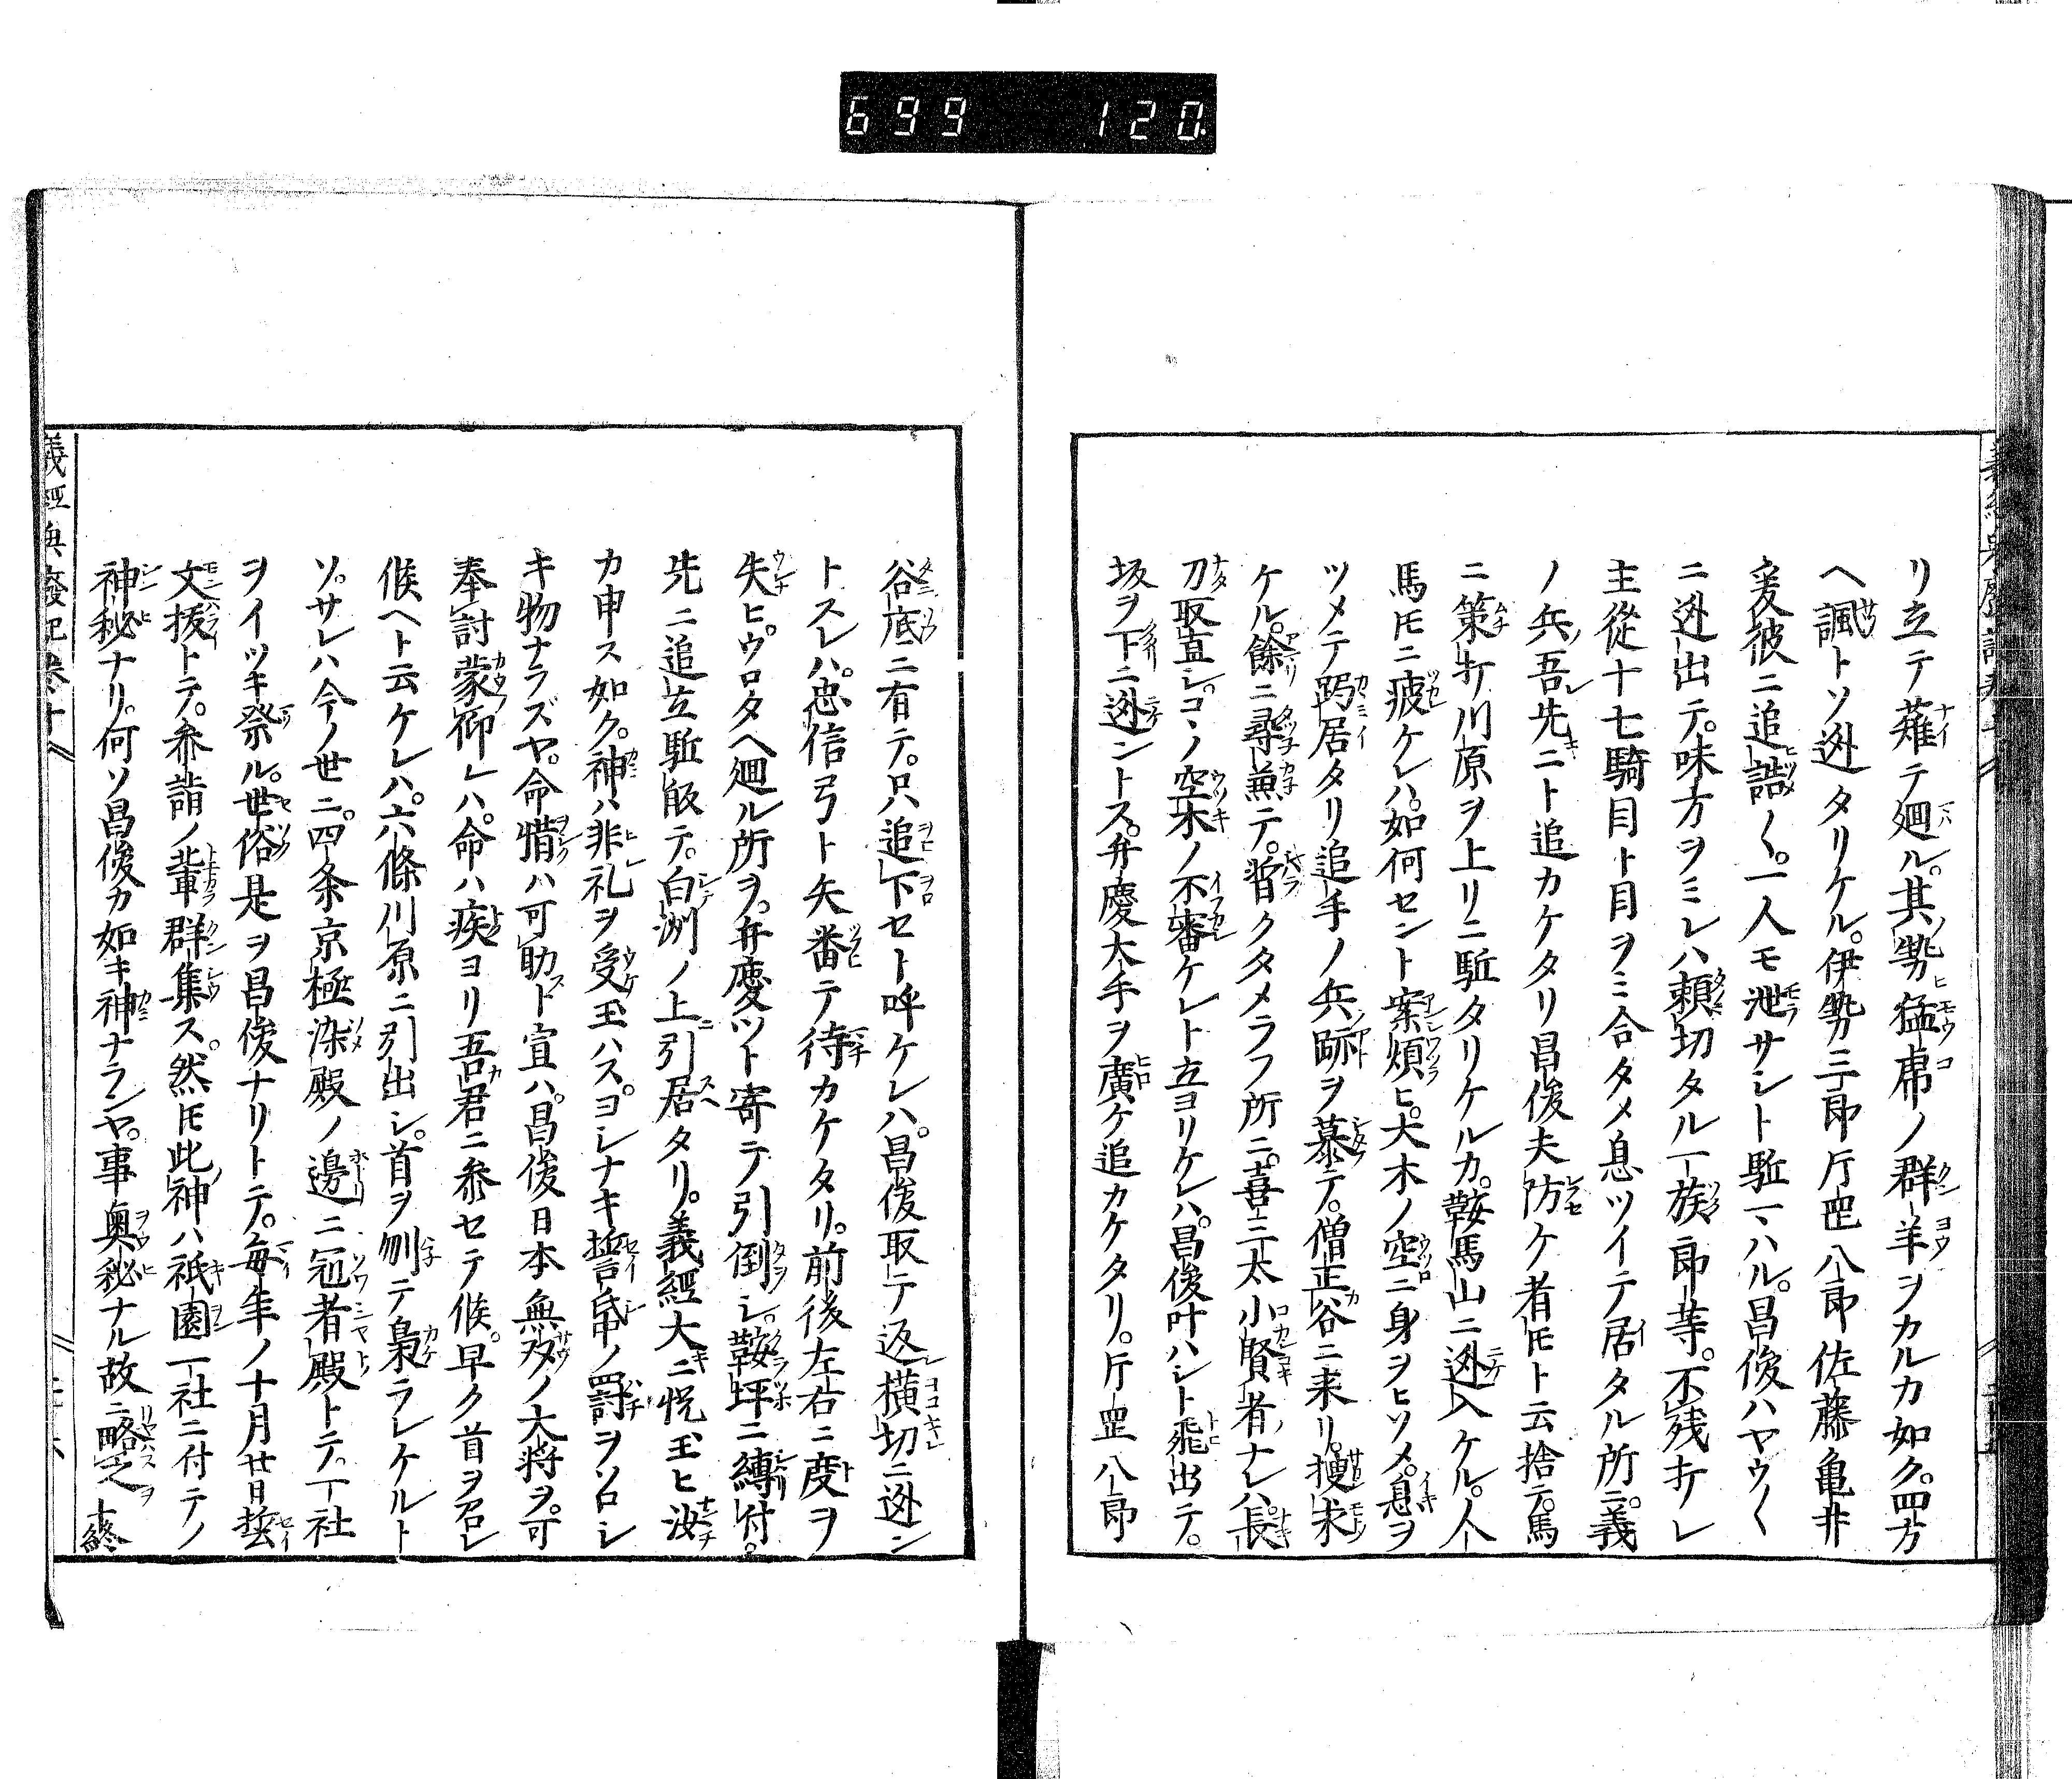 699 120
リ立テ薙テ廻ル。其勢猛虎ノ群羊ヲカルカ如ク。四方
ヘ諷トソ迯タリケル。伊勢三郎片罡八郎佐藤亀井
爰彼ニ追詰〱。一人モ泄サシト駈マハル。昌俊ハヤウ〱
ニ迯出テ。味方ヲミレハ頼切タル一族郎等。不残打レ
主従十七騎目ト目ヲミ合タメ息ツイテ居タル所ニ。義
ノ兵吾先ニト追カケタリ昌俊夫防ケ者𪜈ト云捨テ。馬
ニ策打川原ヲ上リニ駈タリケルカ。鞍馬山ニ迯入ケル。人
馬𪜈ニ疲ケレハ。如何セント案煩ヒ。大木ノ空ニ身ヲヒソメ。息ヲ
ツメテ跼居タリ追手ノ兵跡ヲ慕テ。僧正谷ニ来リ。捜求
ケル。餘ニ尋兼テ。暫クタメラフ所ニ。喜三太小賢者ナレハ。長
刀取直シ。コヽノ空木ノ不審ケレト立ヨリケレハ。昌俊叶ハシト飛出テ。
坂ヲ下ニ迯ントス。弁慶大手ヲ廣ケ追カケタリ。片罡八郎
谷底ニ有テ。只追下セト呼ケレハ。昌俊取テ返シ横切ニ迯ン
トスレハ。忠信弓ト矢番テ待カケタリ。前後左右ニ度ヲ
失ヒ。ウロタヘ廻ル所ヲ。弁慶ツト寄テ引倒シ。鞍坪ニ縛付。
先ニ追立駈皈テ。白洲ノ上ニ引居タリ。義經大ニ悦玉ヒ汝
カ申ス如ク。神ハ非礼ヲ受玉ハス。ヨシナキ誓帋ノ罸ヲソロシ
キ物ナラズヤ。命惜ハ可助ト宣ハ。昌俊日本無双ノ大将ヲ。可
奉討蒙仰レハ。命ハ疾ヨリ吾君ニ参セテ候。早ク首ヲ召レ
候ヘト云ケレハ。六條川原ニ引出シ。首ヲ刎テ梟ラレケルト
ソ。サレハ今ノ世ニ。四条京極染殿ノ邊ニ冠者殿トテ。一社
ヲイツキ祭ル。世俗是ヲ昌俊ナリトテ。毎年ノ十月廿日誓
文拔トテ。参詣ノ輩群集ス。然𪜈此神ハ祇園一社ニ付テノ
神秘ナリ。何ソ昌俊カ如キ神ナランヤ。事奥秘ナル故ニ略之 十終
義經興廢記巻十